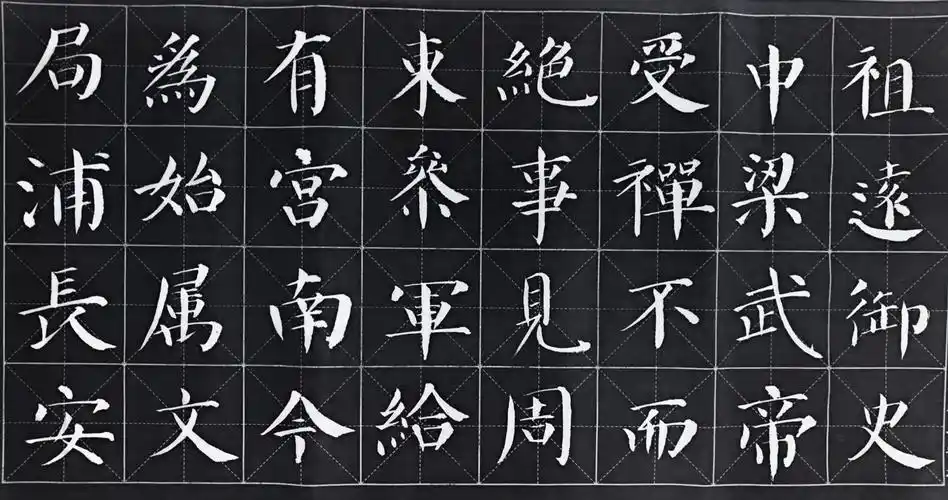 祖遠御史
中梁武帝
受禪不而
絶事見周
東叅軍給
有宮南今
爲始属文
局浦長安